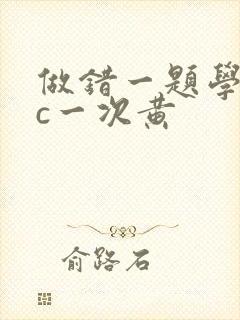 做錯一題學
c一次黄
俞路石